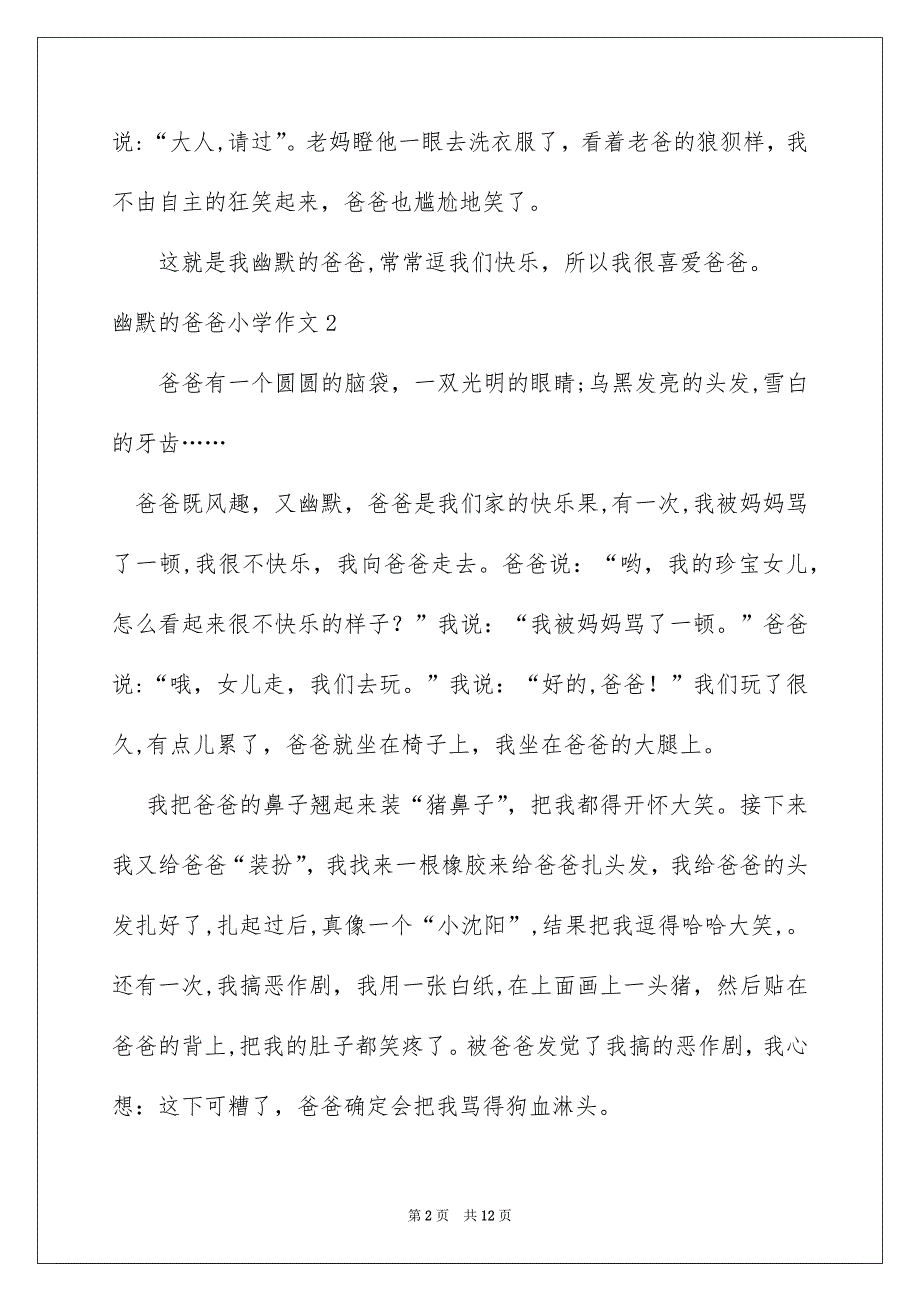 说:“大人,请过”。老妈瞪他一眼去洗衣服了，看着老爸的狼狈样，我
不由自主的狂笑起来，爸爸也尴尬地笑了。
这就是我幽默的爸爸,常常逗我们快乐，所以我很喜爱爸爸。
幽默的爸爸小学作文2
爸爸有一个圆圆的脑袋，一双光明的眼睛;乌黑发亮的头发,雪白
的牙齿……
爸爸既风趣，又幽默，爸爸是我们家的快乐果,有一次,我被妈妈骂
了一顿,我很不快乐，我向爸爸走去。爸爸说：“哟，我的珍宝女儿，
怎么看起来很不快乐的样子？”我说：“我被妈妈骂了一顿。”爸爸
说:“哦，女儿走，我们去玩。”我说：“好的,爸爸！”我们玩了很
久,有点儿累了，爸爸就坐在椅子上，我坐在爸爸的大腿上。
我把爸爸的鼻子翘起来装“猪鼻子”，把我都得开怀大笑。接下来
我又给爸爸“装扮”，我找来一根橡胶来给爸爸扎头发，我给爸爸的头
发扎好了,扎起过后,真像一个“小沈阳”,结果把我逗得哈哈大笑,。
还有一次,我搞恶作剧，我用一张白纸,在上面画上一头猪，然后贴在
爸爸的背上,把我的肚子都笑疼了。被爸爸发觉了我搞的恶作剧，我心
想：这下可糟了，爸爸确定会把我骂得狗血淋头。
第2页 共12页